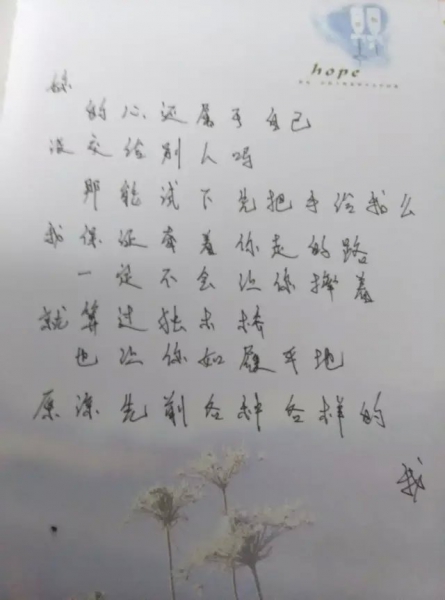 hope
你
的心还属于自己
没交给别人吗
那能试下先把手给我么
我保证牵着你走的路
一定不会让你摔着
就算过独木桥
也让你如履平地
原谅先前各种各样的
我